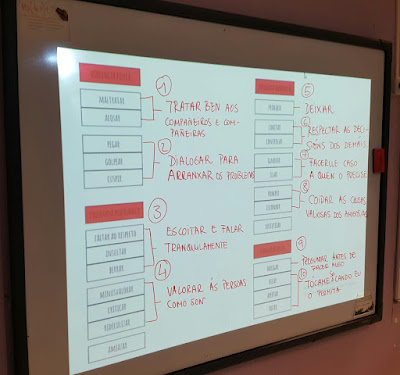 MALTRATAR
ACOSAR
①
TRATAR BEN AOS
COMPAÑEIROS E COM-
PAÑEIRAS
PEGAR
GOLPEAR
CUSPIR
②
DIALOGAR PARA
ARRANXAR OS PROBLEMAS
③
FALTAR AO RESPETO
INSULTAR
BERRAR
ESCOITAR E FALAR
TRANQUILAMENTE
④
MENOSPREZAR
CRITICAR
RIDICULIZAR
VALORAR ÁS PERSOAS
COMO SON
AMEAZAR
⑤
DEIXAR
⑥
RESPECTAR AS DECI-
SIÓNS DOS DEMAIS
⑦
FACERLLE CASO
A QUEN O PRECISE
ROMPER
ESCONDER
⑧
COIDAR AS COUSAS
VALIOSAS DOS AMIGOS/AS
⑨
PREGUNTAR ANTES DE
FACER ALGO
⑩
TOCAME CANDO EU
O PERMITA